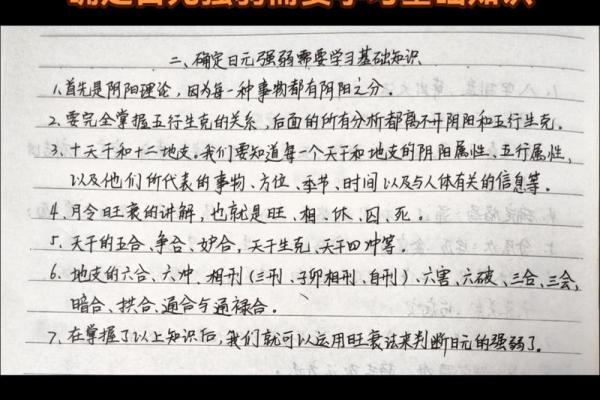 确定日元强弱需要学习基础知识
二、确定日元强弱需要学习基础知识
1.首先是阴阳理论，因为每一种事物都有阴阳之分。
2.要完全掌握五行生克的关系，后面的所有分析都离不开阴阳和五行生克。
3.十天干和十二地支。我们要知道每一个天干和地支的阴阳属性、五行属性，
以及他们所代表的事物、方位、季节、时间以及与人体有关的信息等。
4.月令旺衰的讲解，也就是旺、相、休、囚、死。
5.天干的五合、争合、妒合，天干生克、天干四冲等。
6.地支的六合、六冲、相刑（三刑、子卯相刑、自刑）、六害、六破、三合、三会，
暗合、拱合、通合与通禄合。
7.在掌握了以上知识后，我们就可以运用旺衰法来判断日元的强弱了。